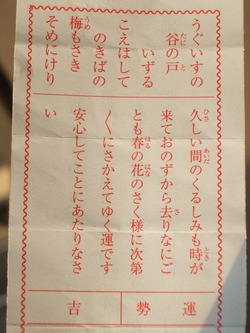 うぐいすの
谷の戸
いずる
こえはして
のきばの
梅もさき
そめにけり
久しい間のくるしみも時が
来ておのずから去りなにご
とも春の花のさく様に次第
〱にさかえてゆく運です
安心してことにあたりなさ
い
運勢
吉